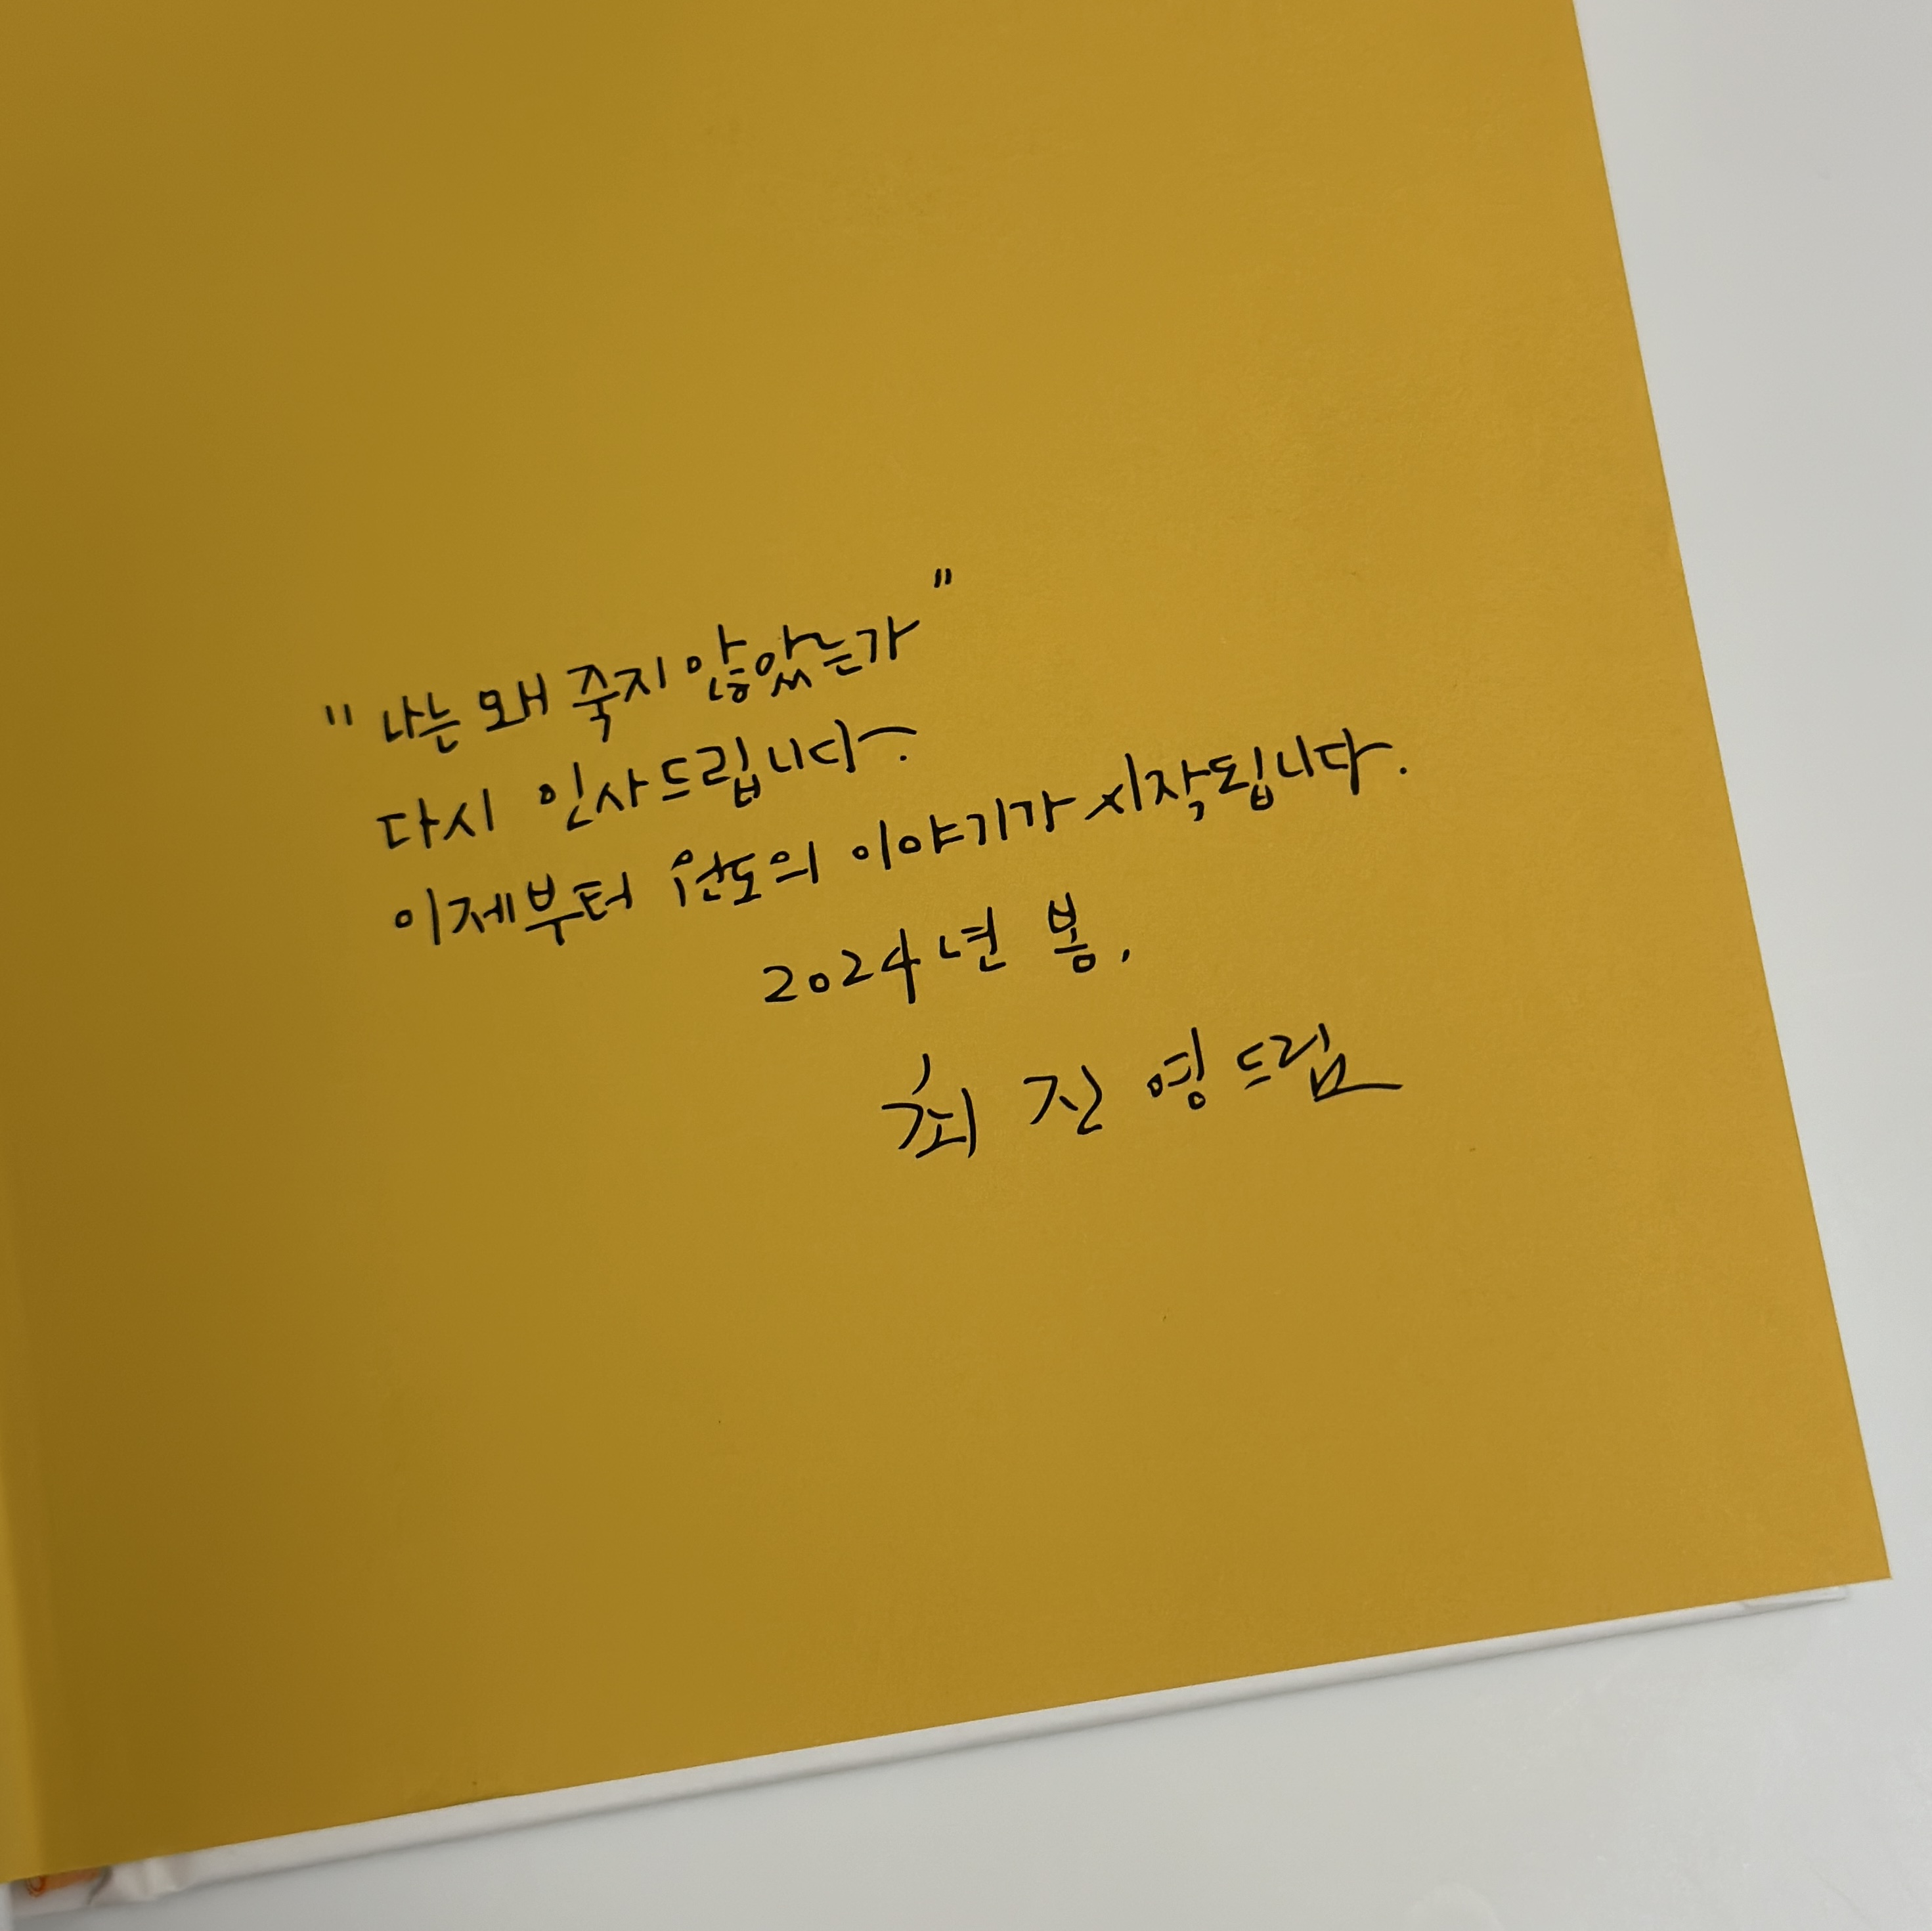 "나는 왜 죽지 않았는가"
다시 인사드립니다.
이제부터 원도의 이야기가 시작됩니다.
2024년 봄.
최진영 드림